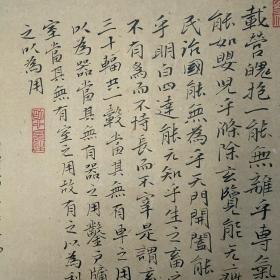 載營魄抱一能無離乎專氣
能如嬰兒乎滌除玄覽能无疵
民治國能無為乎天門開闔能
乎明白四達能无知乎生之畜之
不有為而不恃長而不宰是謂
三十輻共一轂當其無有車之用
以為器當其無有器之用鑿戶牖
室當其無有室之用故有之以為利
之以為用